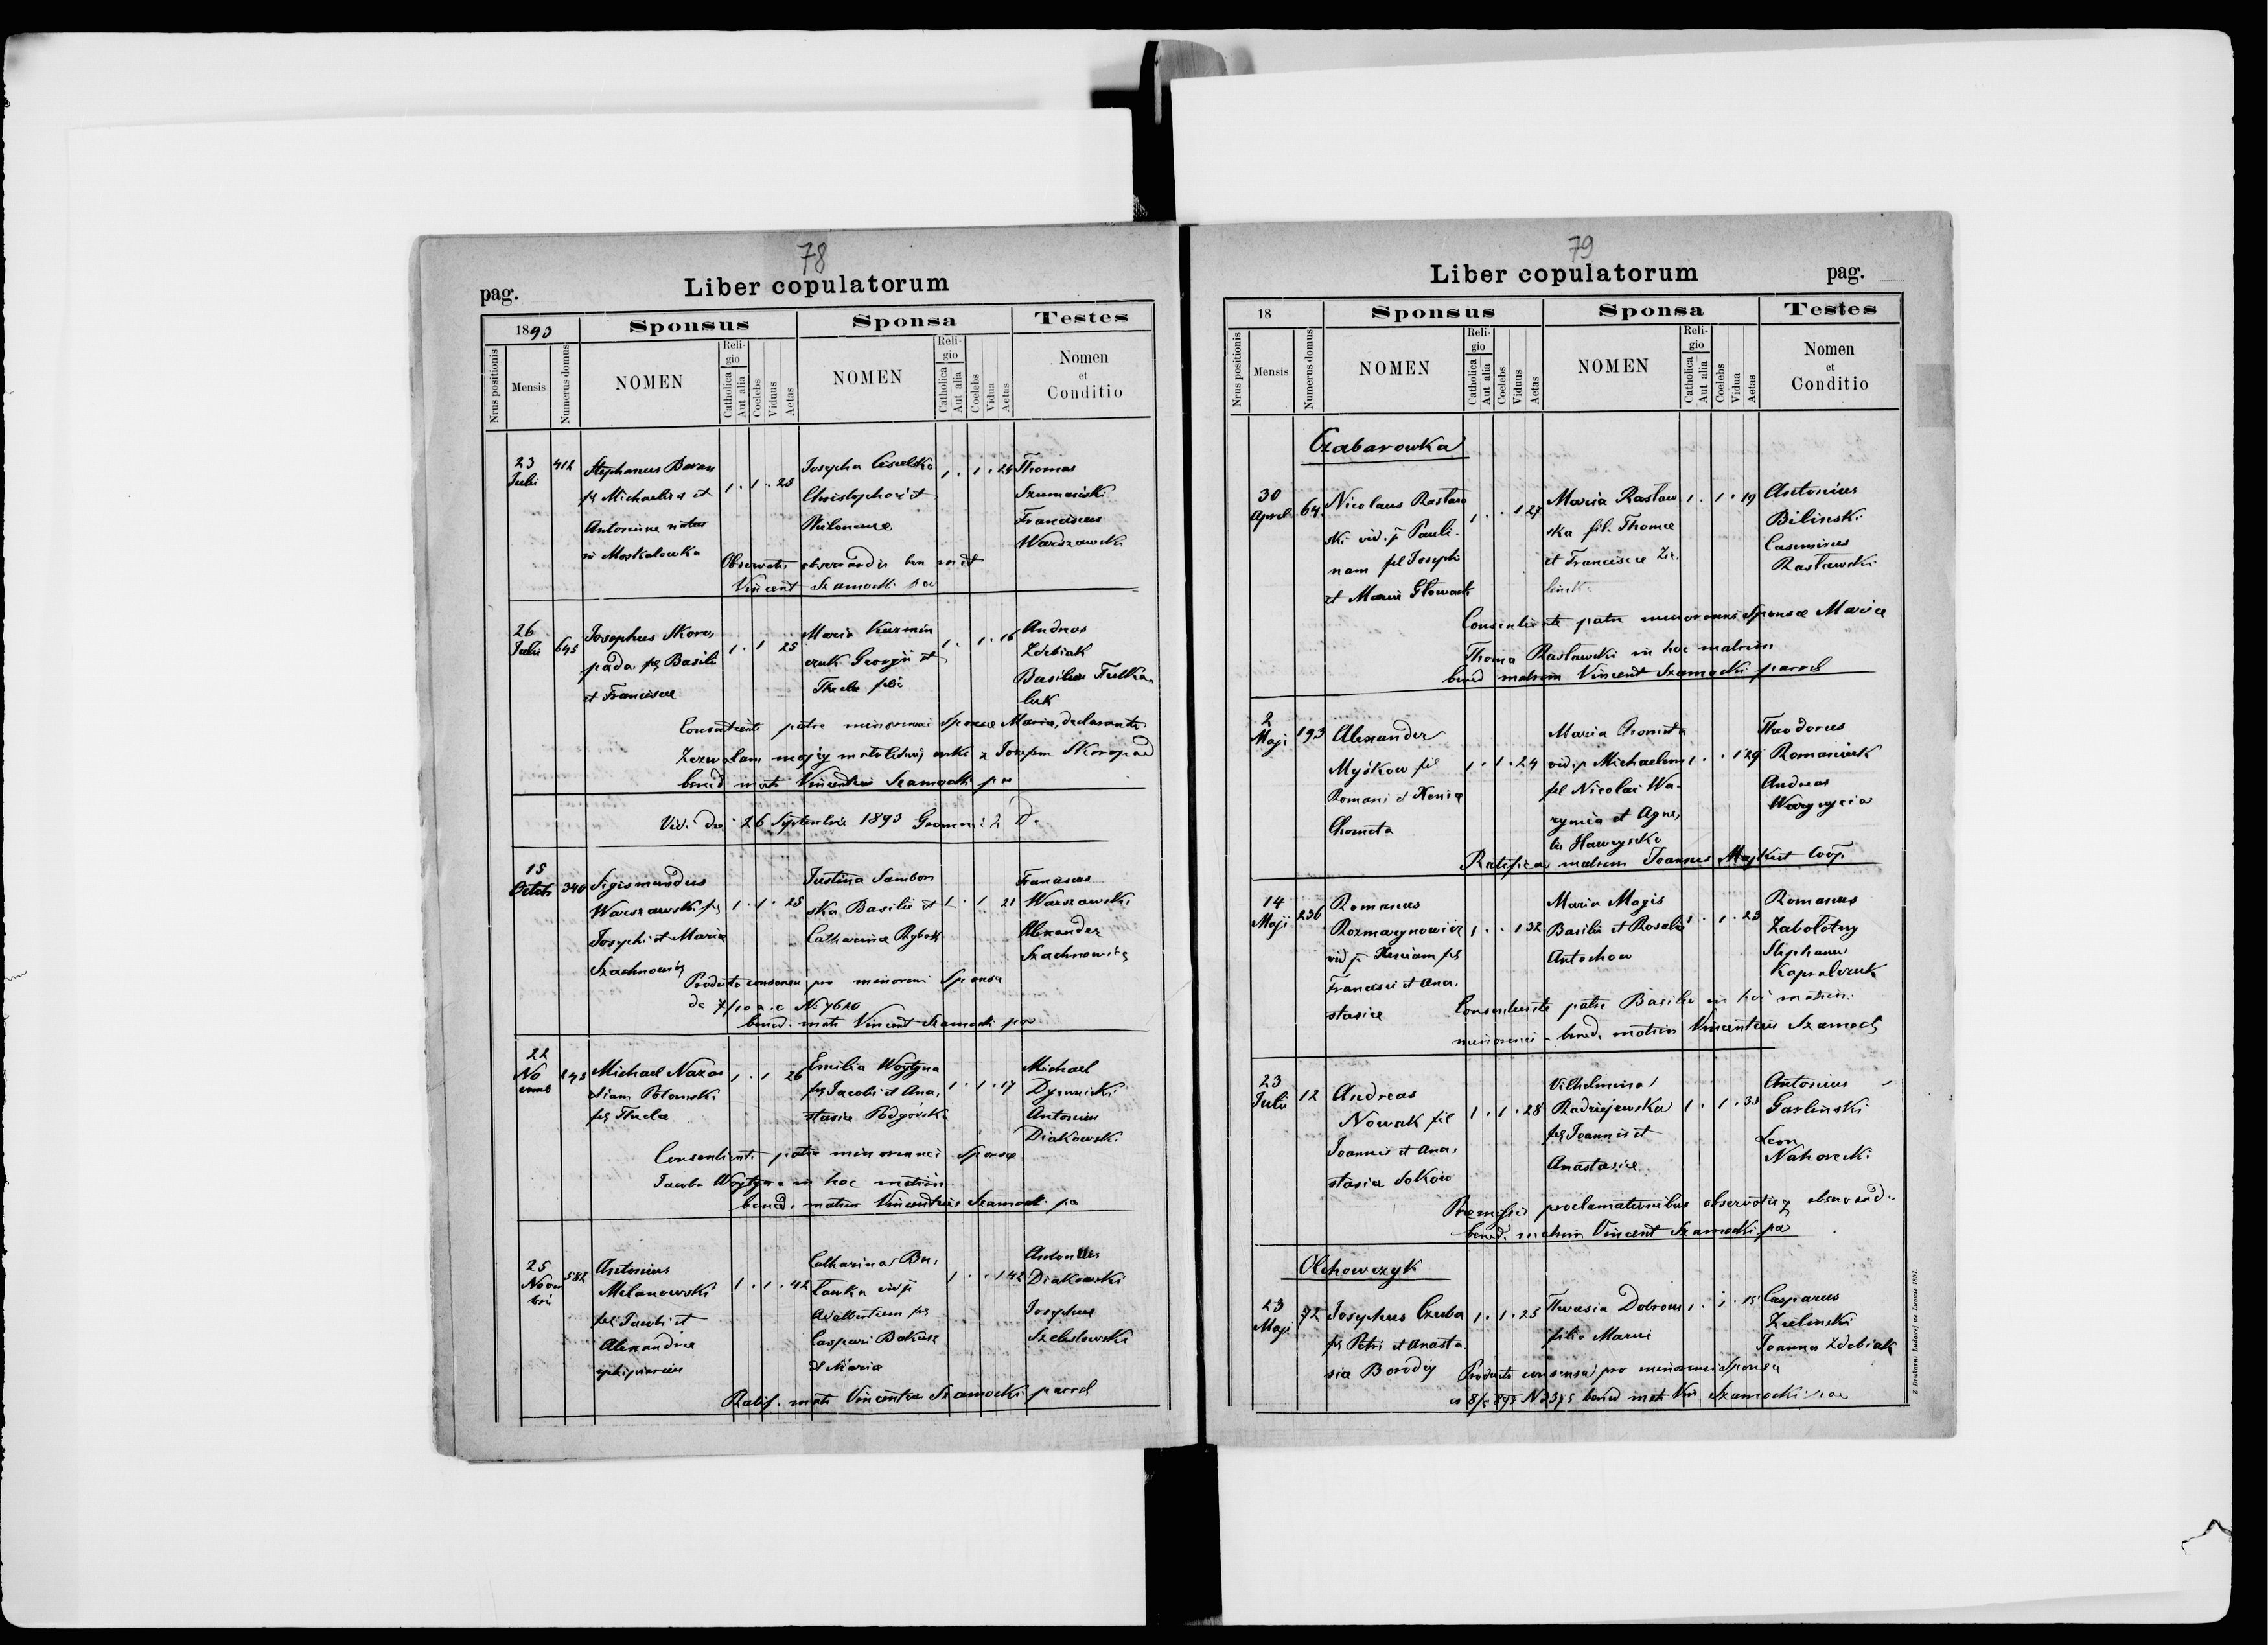 78
Liber copulatorum
pag.
1893
Sponsus
Sponsa
Testes
Nrus positionis
Mensis
Numerus domus
NOMEN
Religio
Catholica
Aut alia
Coelebs
Viduus
Aetas
NOMEN
Religio
Catholica
Aut alia
Coelebs
Vidua
Aetas
Nomen
et
Conditio
23
Julii
412
Stephanus Baran
fil Michaelis et
Antoninae natus
in Moskalowka
1 . 1 . 23
Josepha
Christophori et
Philomenae
1 . 1 . 24
Thomas
Szumański
Franciscus
Warszawski
Observatis observandis ben
Vincent Szamocki
26
Julii
645
Josephus Skoro,
pada. fil Basilii
et Franciscae
1 . 1 25
Maria Kuzmin
czuk Georgii et
Theclae filia
1 . 1 . 16
Andreas
Zdebiak
Basilius
luk
Consentiente patre minorenni Sponsae Mariae, declarante
Zezwalam mojéj małoletniéj corki z Jozefem Skoropad
bened matr Vincentius Szamocki
Vidi die 26 Septembris 1893
15
Octobr
340
Sigismundus
Warszawski fil
Josephi et Maria
Szachnowicz
1 . 1 . 25
Justina Sambor
ska Basilii et
Catharina Rybak
1 . 1 21
Franciscus
Warszawski
Alexander
Szachnowicz
Producto consensu pro minoreni Sponsa
de 7/10 a. c No 7620
bened. matr Vincent Szamocki
22
No
vemb
243
Michael Nazar
Potomski
fil Thecla
1 . 1 26
Emilia Wojtyna
fil Jacobi et Ana,
stasia Podgórska
1 . 1 . 17
Michael
Dymnicki
Antonius
Diakowski.
Consentiente patre minorenni Sponsae
Jacobo Wojtyna in hoc matrim
bened. matrim Vincentius Szamocki pa
25
Novem
bris
582
Antonius
Melanowski
fil Jacobi et
Alexandrae
1 . 1 . 42
Catharina Bu,
lanka vid p
Adalbertum fil
Caspari
et Maria
1 . . 1 42
Antonius
Diakowski
Josephus
Szelestowski
Ratif. matr Vincentius Szamocki paroch
79
Liber copulatorum
pag.
18
Sponsus
Sponsa
Testes
Nrus positionis
Mensis
Numerus domus
NOMEN
Religio
Catholica
Aut alia
Coelebs
Viduus
Aetas
NOMEN
Religio
Catholica
Aut alia
Coelebs
Vidua
Aetas
Nomen
et
Conditio
Czabarowka
30
April
64
Nicolaus Rastaw
ski vid. p Pauli-
nam fil Joseph
et Maria Glowack
1 . . 1 27
Maria Rastaw
ska fil. Thomae
et Franciscae Zie-
linsk
1 . 1 . 19
Antonius
Bilinski
Casimirus
Rastawski
Consentiente patre minorenni Sponsae Mariae
Thoma Rastawski in hoc matrim
bened matrim Vincent Szamocki paroch
2
Maji
193
Alexander
Myśkow fil
Romani et Xenia
Chometa
1 . 1 . 24
Maria Chometa
vid. p Michaelem
fil Nicolai Wa-
rynica et Agne,
tis Hawryszko
1 . . 1 29
Theodorus
Romaniuk
Andreas
Ratificav matrim Joannes Majkut Coop.
14
Maji
236
Romanus
Rozmarynowicz
vid p Xeniam fil
Francisci et Ana,
stasiae
1 . . 1 32
Maria Magis
Basilii et Rosalia
Antochow
1 . 1 . 23
Romanus
Zabolotny
Stephanus
Kapralczuk
Consentiente patre Basilio in hoc matrim.
minorenni - bened. matrim Vincentius Szamocki
23
Julii
12
Andreas
Nowak fil
Joannis et Ana,
stasia Sokow
1 . 1 . 28
Vilhelmina
Radziejewska
fil Joannis et
Anastasiae.
1 . 1 . 33
Antonius
Garlinski
Leon
Nahorecki
Premissis proclamationibus observatis observand.
bened. matrim Vincent Szamocki pa
Olchowczyk
23
Maji
72
Josephus Czuba
fil Petri et Anasta
sia Borodij
1 . 1 . 25
Theresia Dobrow
filia Maria
1 . 1 . 15
Casparus
Zielinski
Joannes Zdebiak
Producto consensu pro minorenni Sponsa
bened matr Vin. Szamocki
Z Drukarni Ludowej we Lwowie 1891.